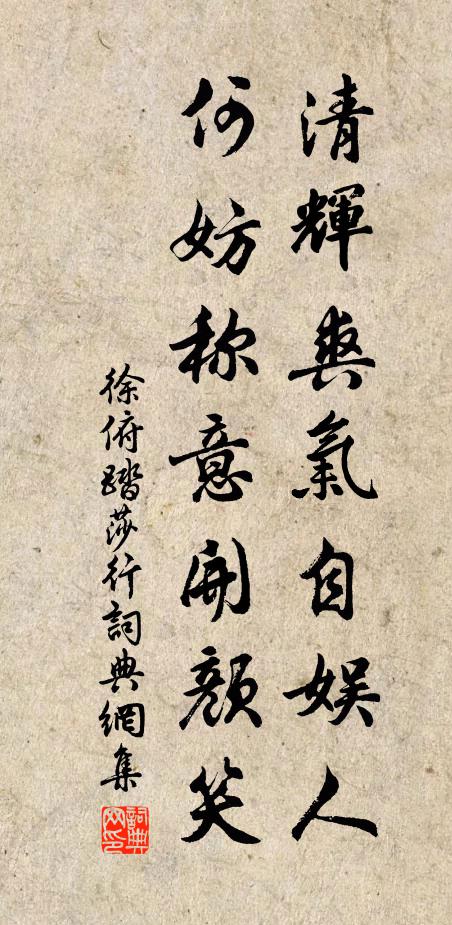 清輝爽氣自娱人
何妨称意開顏笑
徐俯踏莎行詞典網集
詞典网印